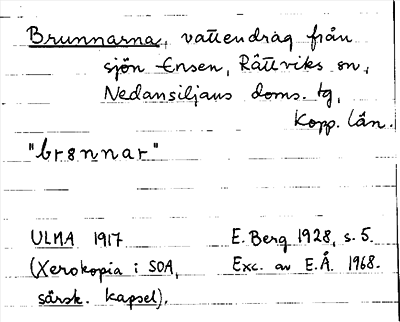 Brunnarna, vattendrag från
sjön Ensen, Rättviks sn,
Nedansiljans doms. tg,
Kopp. län.
"brønnar"
ULMA 1917 E. Berg 1928, s. 5.
(Xerokopia i SOA, Exc. av E.Å. 1968.
särsk. kapsel).